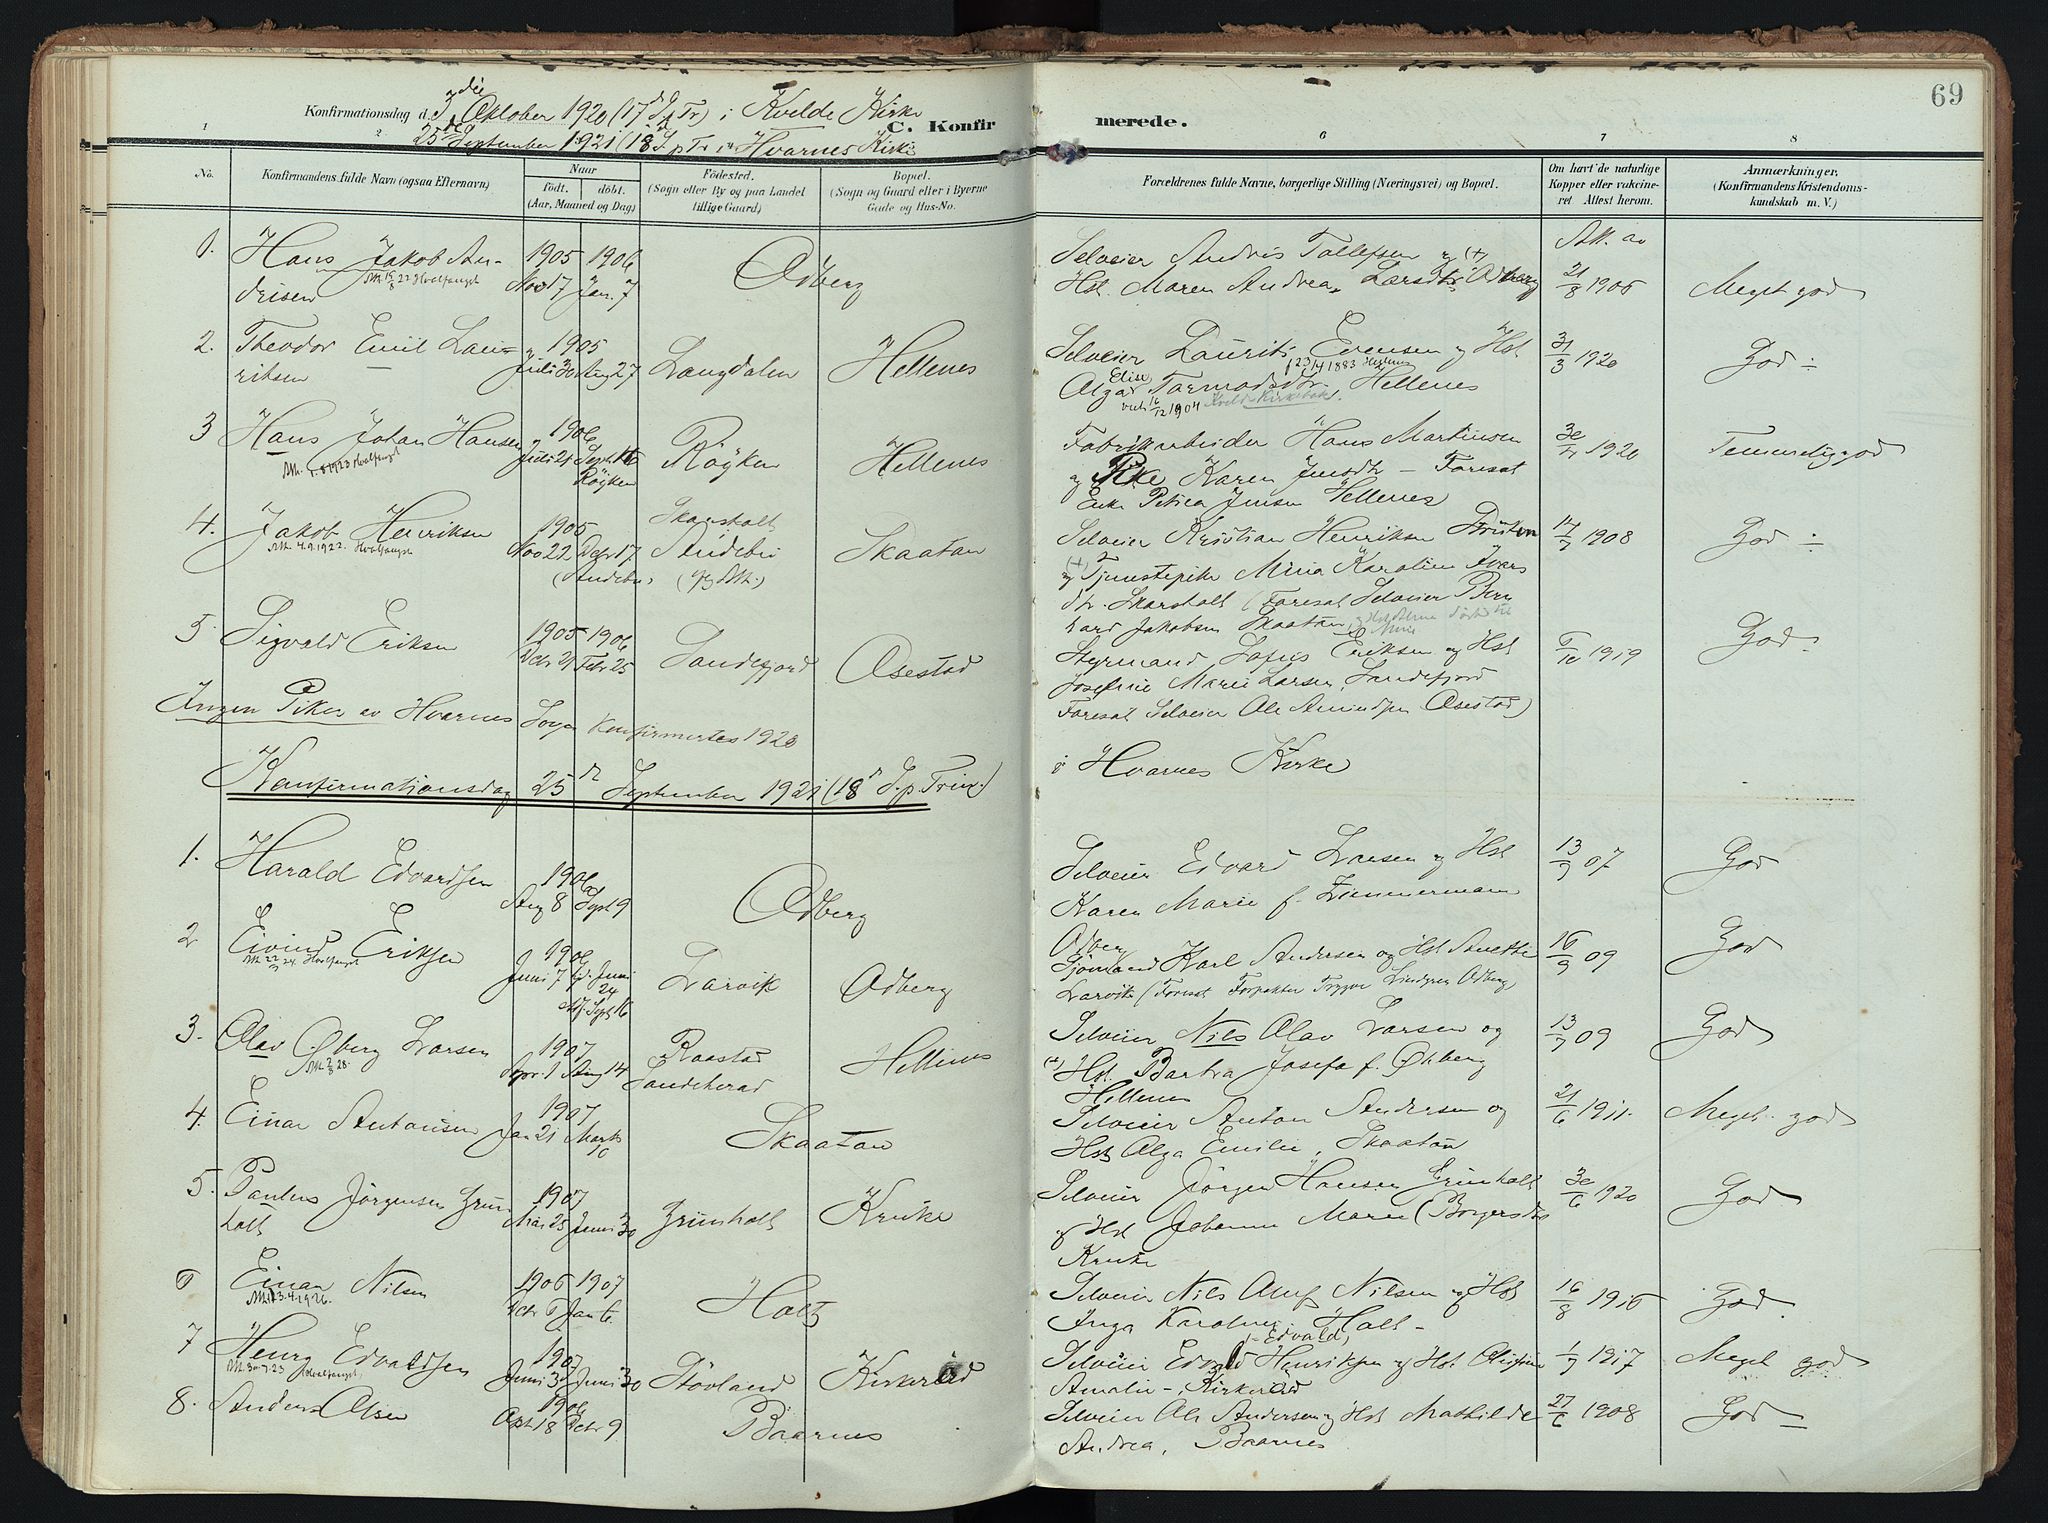 69
Konfirmationsdag d. 3die Oktober 1920 (17d S p Tr) i Kvelde Kirke
25de September 1921 (18d S p Tr i Hvarnes Kirke
C. Konfirmerede.
1 2 6 7 8
No.
Konfirmandens fulde Navn (ogsaa Efternavn).
Naar
født. døbt.
(Aar, Maaned og Dag)
Fødested.
(Sogn eller By og paa Landet
tillige Gaard)
Bopæl.
(Sogn og Gaard eller i Byerne
Gade og Hus-No.
Forældrenes fulde Navne, borgerlige Stilling (Næringsvei) og Bopæl.
Om havt de naturlige
Kopper eller vakcine-
ret Attest herom.
Anmærkninger.
(Konfirmandens Kristendoms-
kundskab m. V.)
1. Hans Jakob An- 1905 1906 Odberg Selveier Andris Tollefsen og (+) Att. av
drisen Att. 15/8 22 Hvalfangst Nov 17 Jan. 7 Hst. Maren Andrea Larsdtr Odberg 21/8 1906 Meget god
2. Theodor Emil Lau- 1905 Langdalen Hellenes Selveier Laurits Evensen og Hst 31/3 1920 God
ritsen Juli 30 Aug 27 Olga Elise Tormodsdtr. f 23/4 1883 Hellenes
viet 16/12 1904 Kvelde Kirkebok
3 Hans Johan Hansen 1906 Røyken Hellenes Fabrikarbeider Hans Martinsen 1920 Temmelig god
Att. 1.8.1923 Hvalfangst Juli 21 Sept 16 Røyken og Pike Karen Jensdtr - Foresat
Enke Petrea Jensen Hellenes
4. Jakob Henriksen 1905 Skarsholt Skaatan Selveier Kristian Henriksen 1908 God
Att. 4.9.1922. Hvalfangst Nov 22 Decbr 17 Andebu (Andebu) (+) og Tjenestepike Mina Karoline Ivars
dtr. Skarsholt (Foresat Selveier Bern
hard Jakobsen Skaatan
5 Sigvald Eriksen 1905 1906 Sandefjord Asestad Styrmand Sofus Eriksen og Hst 1919 God
Decbr 21 Febr 25 Josefine Marie Larsen, Sandefjord
Foresat Selveier Ole Amundsen Aasestad)
Ingen Piker av Hvarnes Sogn konfirmertes 1920
Konfirmationsdag 25d September 1921 (18d S. p Trin.) i Hvarnes Kirke
1. Harald Edvardsen 1906 Odberg Selveier Edvard Larsen og Hst 13/9 07 God
Aug 8 Sept 9 Karen Marie f. Zimmermann
Odberg
2 Eivind Eriksen 1906 Larvik Odberg Sjømand Karl Andersen og Hst Anette 16/9 09 God
Att. 22 24 Hvalfanget Juni 7 Juni 24 Sept 16 Larvik (Foresat Forpakter Trygve Lindgren Odberg)
3. Olav Øberg Larsen 1907 Raastad Hellenes Selveier Nils Olav Larsen og 13/9 09 God
Apr. 1 Aug 14 Sandeherad (+) Hst. Bartra Josefa f. Økberg
Hellenes
4. Einar Antonsen 1907 Skaatan Selveier Anton Andersen og 21/6 1911. Meget god
Jan 21 Marts 10 Hst Olga Emilie, Skaatan
5. Paulus Jørgensen Grün 1907 Grünholt Kruke Selveier Jørgen Hansen Grünholt 30/6 1920 God
holt Mai 25 Juni 30 og Hst Johanne Marie (Borgersdtr
Kruke
6 Einar Nilsen 1906 1907 Holt Selveier Nils Nilsen og Hst 16/8 God
Att 13.4.1926. Decbr 6 Jan 6. Inga Karoline, Holt -
7 Henry Edvaldsen 1907 Støvland Kirkerød Selveier Edvald Henriksen og Hst 1/7 1917 Meget god
Att. 30.7.23 (Hvalfangst) Juni 3 Juni 30 Amalie -, Kirkerød
8. Anders Olsen 1906 Baarnes Selveier Ole Andersen og Hst Mathilde 27/6 1908 God
Okt 18 Decbr 9 Andrea, Baarnes